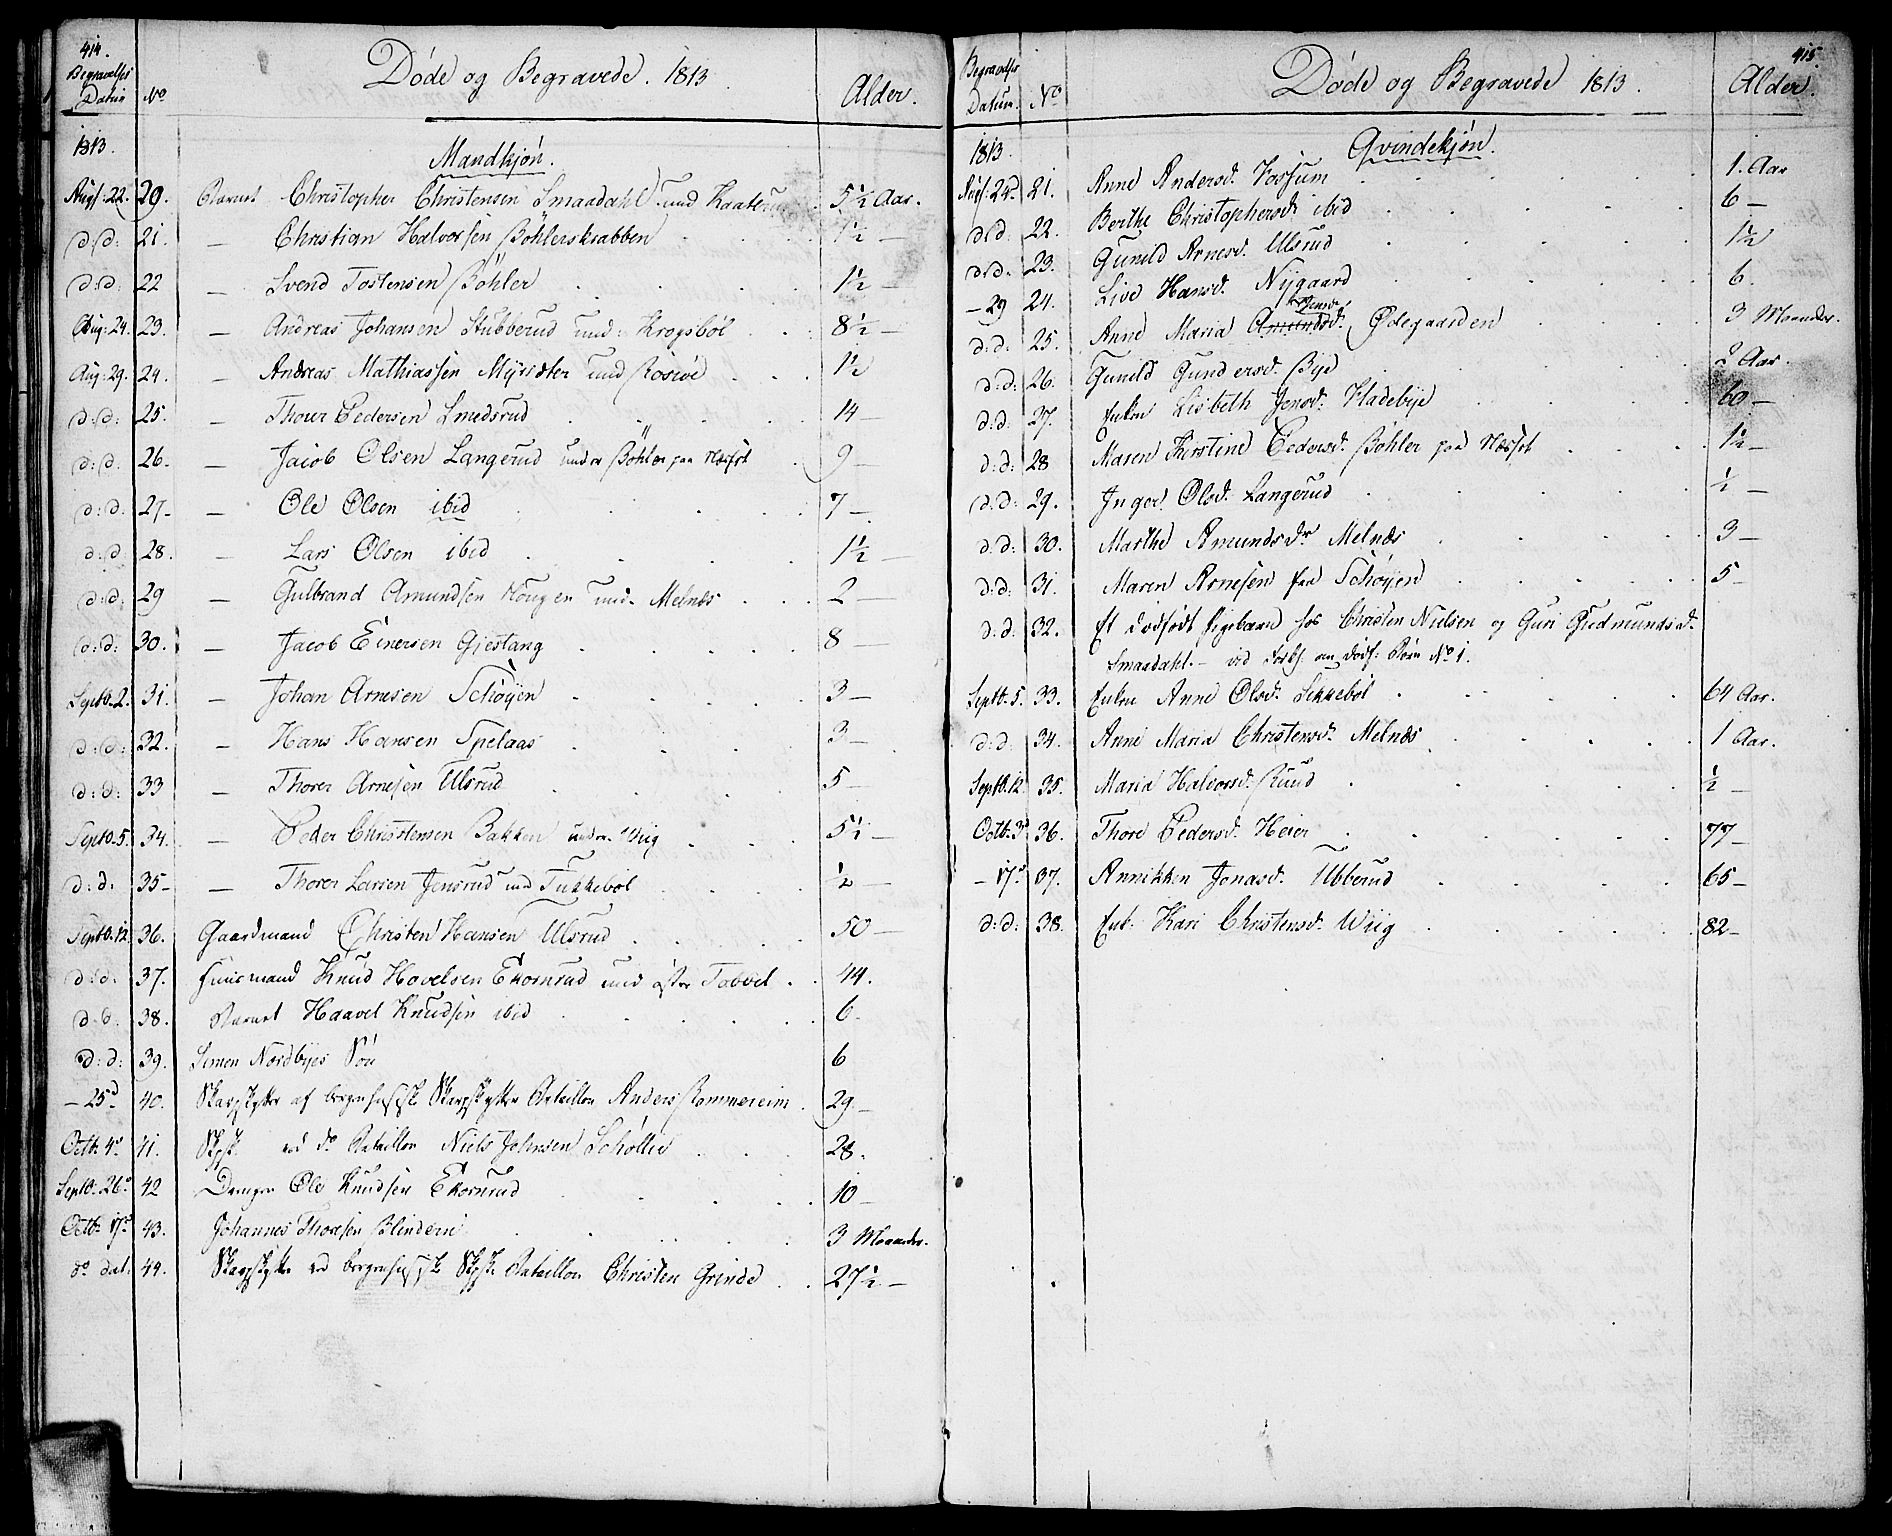 414.
Begravelses Datum No Døde og Begravede. 1813. Alder.
1813.
Mandkjøn.
Aug: 22. 20. Barnet Christopher Christensen Smaadahl und 5 1/2 Aar.
d: d: 21. — Christian Halvorsen Bøhlerskrabben 1 1/2 —
d: d: 22 — Svend Tostensen Bøhler 1 1/2 —
Aug: 24. 23. — Andreas Johansen Stubberud und: Krogsbøl 8 1/2 —
Aug: 29. 24. — Andreas Mathiassen Myrsæter und 1 1/2
d: d: 25. — Thour Pedersen Smedsrud 14 —
d: d. 26. — Jacob Olsen Langerud under Bøhler paa Næsset 9 —
d: d: 27 — Ole Olsen ibid 7 —
d: d 28. — Lars Olsen ibid 1 1/2 —
d: d: 29 — Gulbrand Amundsen Hougen und. Melnæs 2 —
d: d: 30. — Jacob Einersen Gjestang 8 —
Septb. 2. 31. — Johan Arnesen Schøyen 3 —
d: d: 32. — Hans Hansen Spelaas 3 —
d: d: 33 — Thorer Arnesen Ulsrud 5 —
Septb. 5. 34. — Peder Christensen Bakken under Wiig 5 1/2 —
d: d. 35 — Thorer Larsen Jensrud und Tukkebøl 1/2 —
Septb. 12. 36. Gaardmand Christen Hansen Ulsrud 50 —
d: d. 37. Huusmand Knud Hovelsen Ekornrud und øster Tabvel 44.
d. d. 38. Barnet Haavel Knudsen ibid 6.
d: d: 39. Simen Nordbyes Søn 6
— 25d 40. Skarpskytter af bergenhusiske Skarpskytter Bataillon Anders Rommereim 29 —
Octb. 4d 41. Skpsk. ved do Bataillon Niels Johnsen Schøllie 28.
Septb. 26d 42 Drengen Ole Knudsen Ekornrud 10 —
Octb. 17d 43. Johannes Thorsen Blindern 3 Maaneder.
do dat. 44. Skarpskytter ved bergenhusiske Skpsk. Bataillon Christen Grinde 27 1/2 —
415.
Begravelses Datum. No Døde og Begravede 1813. Alder.
1813.
Qvindekjøn.
Aug: 24d 21. Anne Andersd. Fossum 1. Aar
d: d: 22. Berthe Christophersd. ibid 6 —
d: d: 23. Gunild Arnesd. Ulsrud 1 1/2
— 29 24. Live Hansd. Nygaard 6.
d: d: 25. Anne Maria Amundsd. Jensd. Ødegaarden 3 Maaneder.
d: d: 26. Gunild Gundersd. Bye 2 Aar.
d: d: 27. Enken Lisbeth Jensd. Fladebye 60 —
d: d: 28 Maren Kirstine Pedersd. Bøhler paa Næsset 1 1/2 —
d: d: 29. Inger Olsd. Langerud 1/2 —
d: d: 30. Marthe Amundsdr Melnæs 3 —
d: d: 31. Maren Arnesen fra Schøyen 5 —
d: d: 32. Et dødfødt Pigebarn hos Christen Nielsen og Guri Gudmundsd.
Smaadahl. — vid om dødf: Børn No 1.
Septb. 5. 33. Enken Anne Olsd. Sikkebøl 64 Aar.
d: d. 34. Anne Maria Christensd. Melnæs 1 Aar.
Septb. 12. 35. Maria Halvorsd. Ruud 1/2 —
Octb. 3d 36. Thore Pedersd. Heier 77 —
— 17d 37. Annikken Jonasd. Ubberud 65 —
d: d: 38. Enk. Kari Christensd. Wiig 82 —